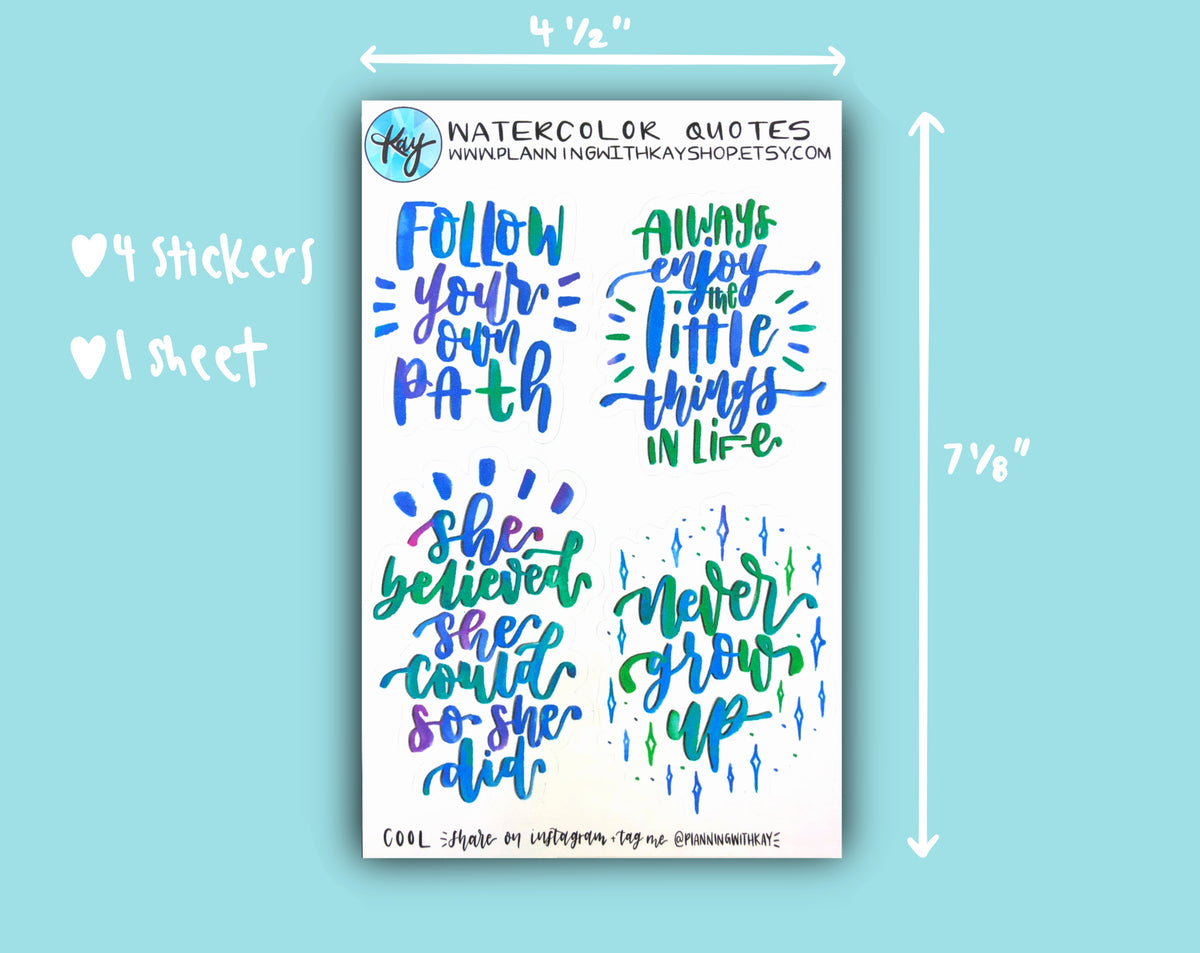 4 1/2"
Kay
WATERCOLOR QUOTES
WWW.PLANNINGWITHKAYSHOP.ETSY.COM
♥4 stickers
♥1 sheet
7 1/8"
FOLLOW
your
own
PAth
AlWAYS
enjoy
the
little
things
IN LiFe
she
believed
she
could
so she
did
never
grow
up
COOL share on instagram + tag me @PlANNINGWITHKAY